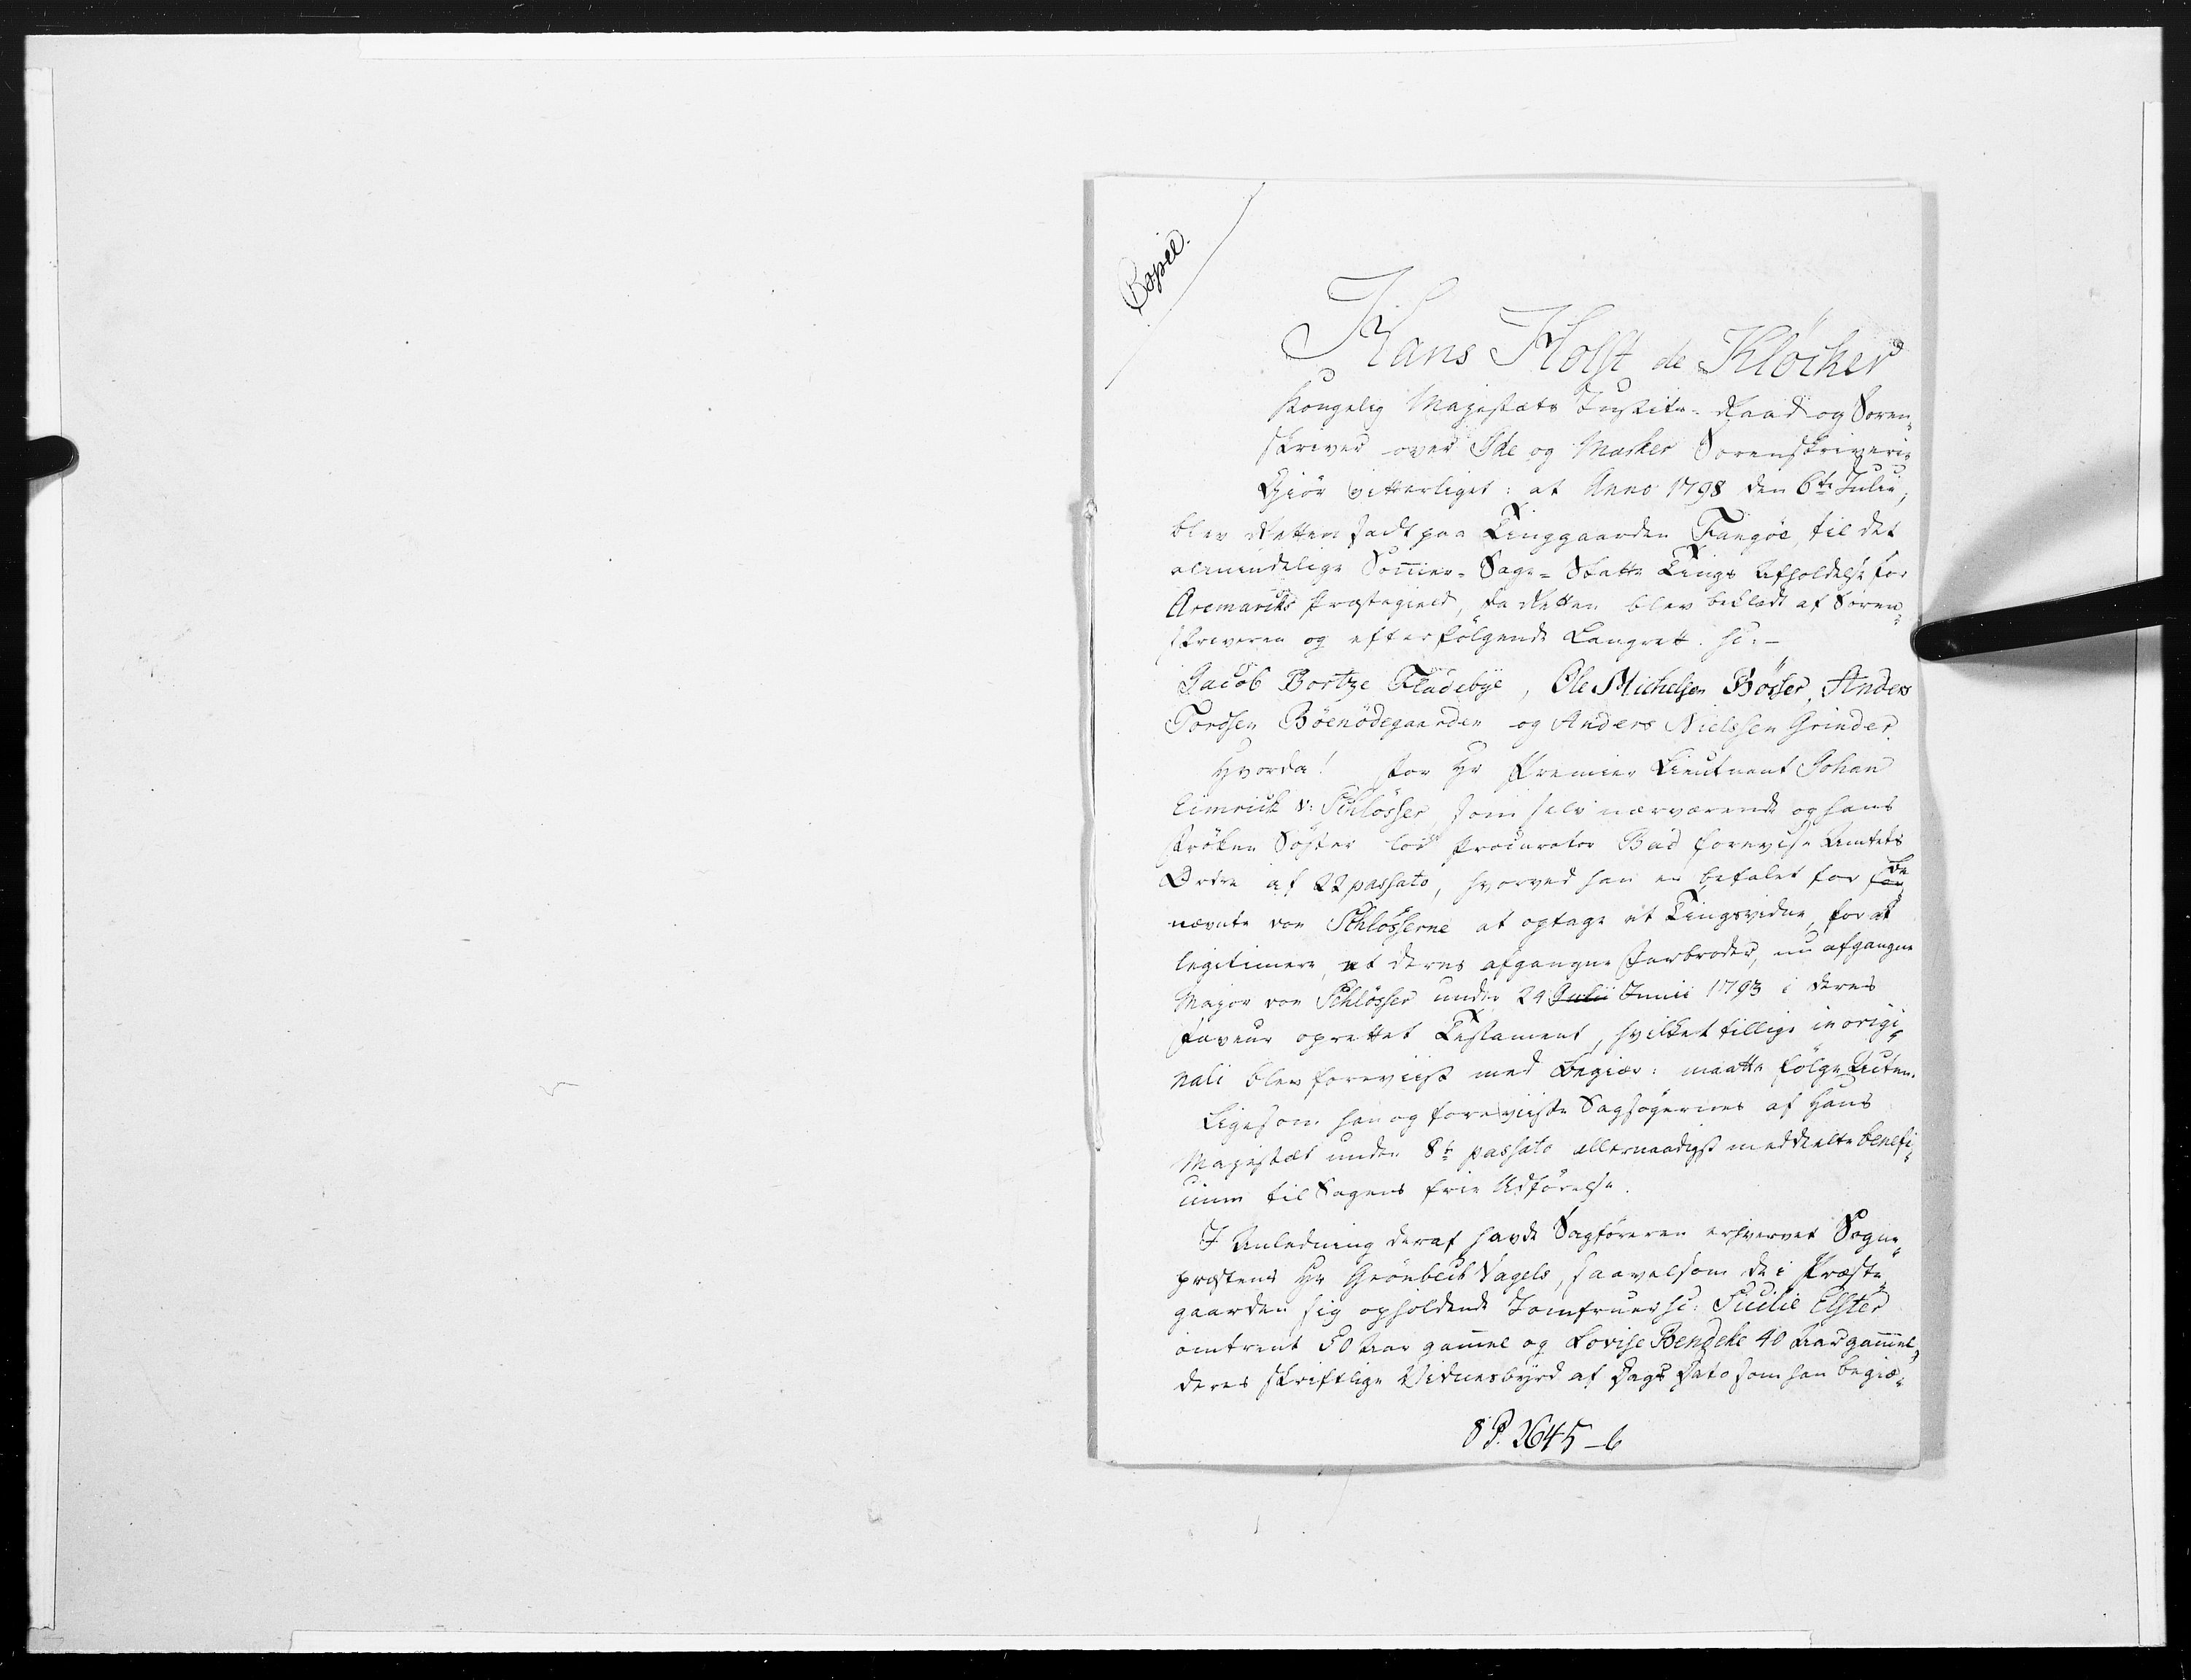 Copie.
Hans Holst de Klöcker
Kongelig Majestæts Justits-Raad og Soren-
skriver over Ide og Marker Sorenskriverie
Giör vitterligt: at Anno 1798 den 6te Julii,
blev Retten sadt paa Tinggaarden Fangöe, til det
almindelige Sommer-Sage-Skatte Tings Afholdelse for
Aremarchs Præstegield, da Retten blev beklædt af Soren-
skriveren og efterfölgende Laugrett. sc:-
Jacob Bortze Fladebye, Ole Michelsen Böeser, Anders
Tordsen Böenödegaarden og Anders Nielssen Grinder.
Hvorda! for Hr Premier Lieutnant Johan
Eimrick v: Schlösser, som selv nærværende og hans
Fröken Söster lod Procurator Bad forevise Amtets
Ordre af 22 passato, hvorved han er befalet for for be
nævnte von Schlösserne at optage et Tingsvidne, for at
legitimere, at deres afgangne Farbroder, nu afgangne
Major von Schlösser under 24 Julii Junii 1793 i deres
Faveur oprettet Testament, hvilket tillige in origi-
nali blev foreviist med Begiær: maatte fölge Acten.
Ligesom han og foreviiste Sagsögernes af Hans
Majestæt under 8de passato allernaadigst meddeelte benefi-
cium til Sagens frie Udförelse.
I Anledning deraf havde Sagföreren erhvervet Sogne-
præstens Hr Grönbech Nagels, saavelsom de i Præste-
gaarden sig opholdende Jomfruer sc: Sicilie Elster
omtrent 50 Aar gammel og Lovise Bendeke 40 Aar gammel,
deres skriftlige Vidnesbyrd af Dags Dato som han begiæ-
8 P. 2645-6